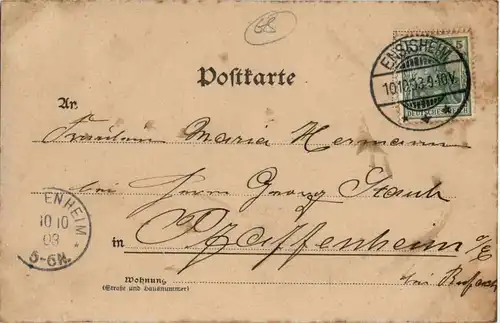 88
ENSISHEIM
10.10.03.9-10V.
5
DEUTSCHES REICH
Postkarte
An
Fräulein Maria Hermann
bei Herrn Georg Staub
in Pfaffenheim o/E
bei Rufach
ENHEIM
10 10
03
5-6N.
Wohnung
(Straße und Hausnummer)